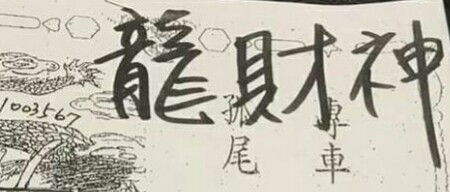 龍財神
1003567
專車
狐尾